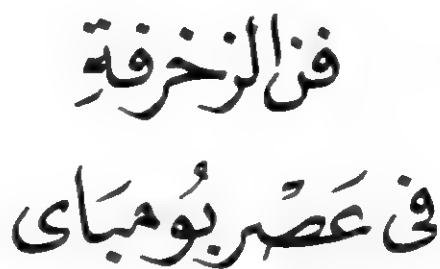 فن الزخرفةِ
فى عَصْر بُومبَاى